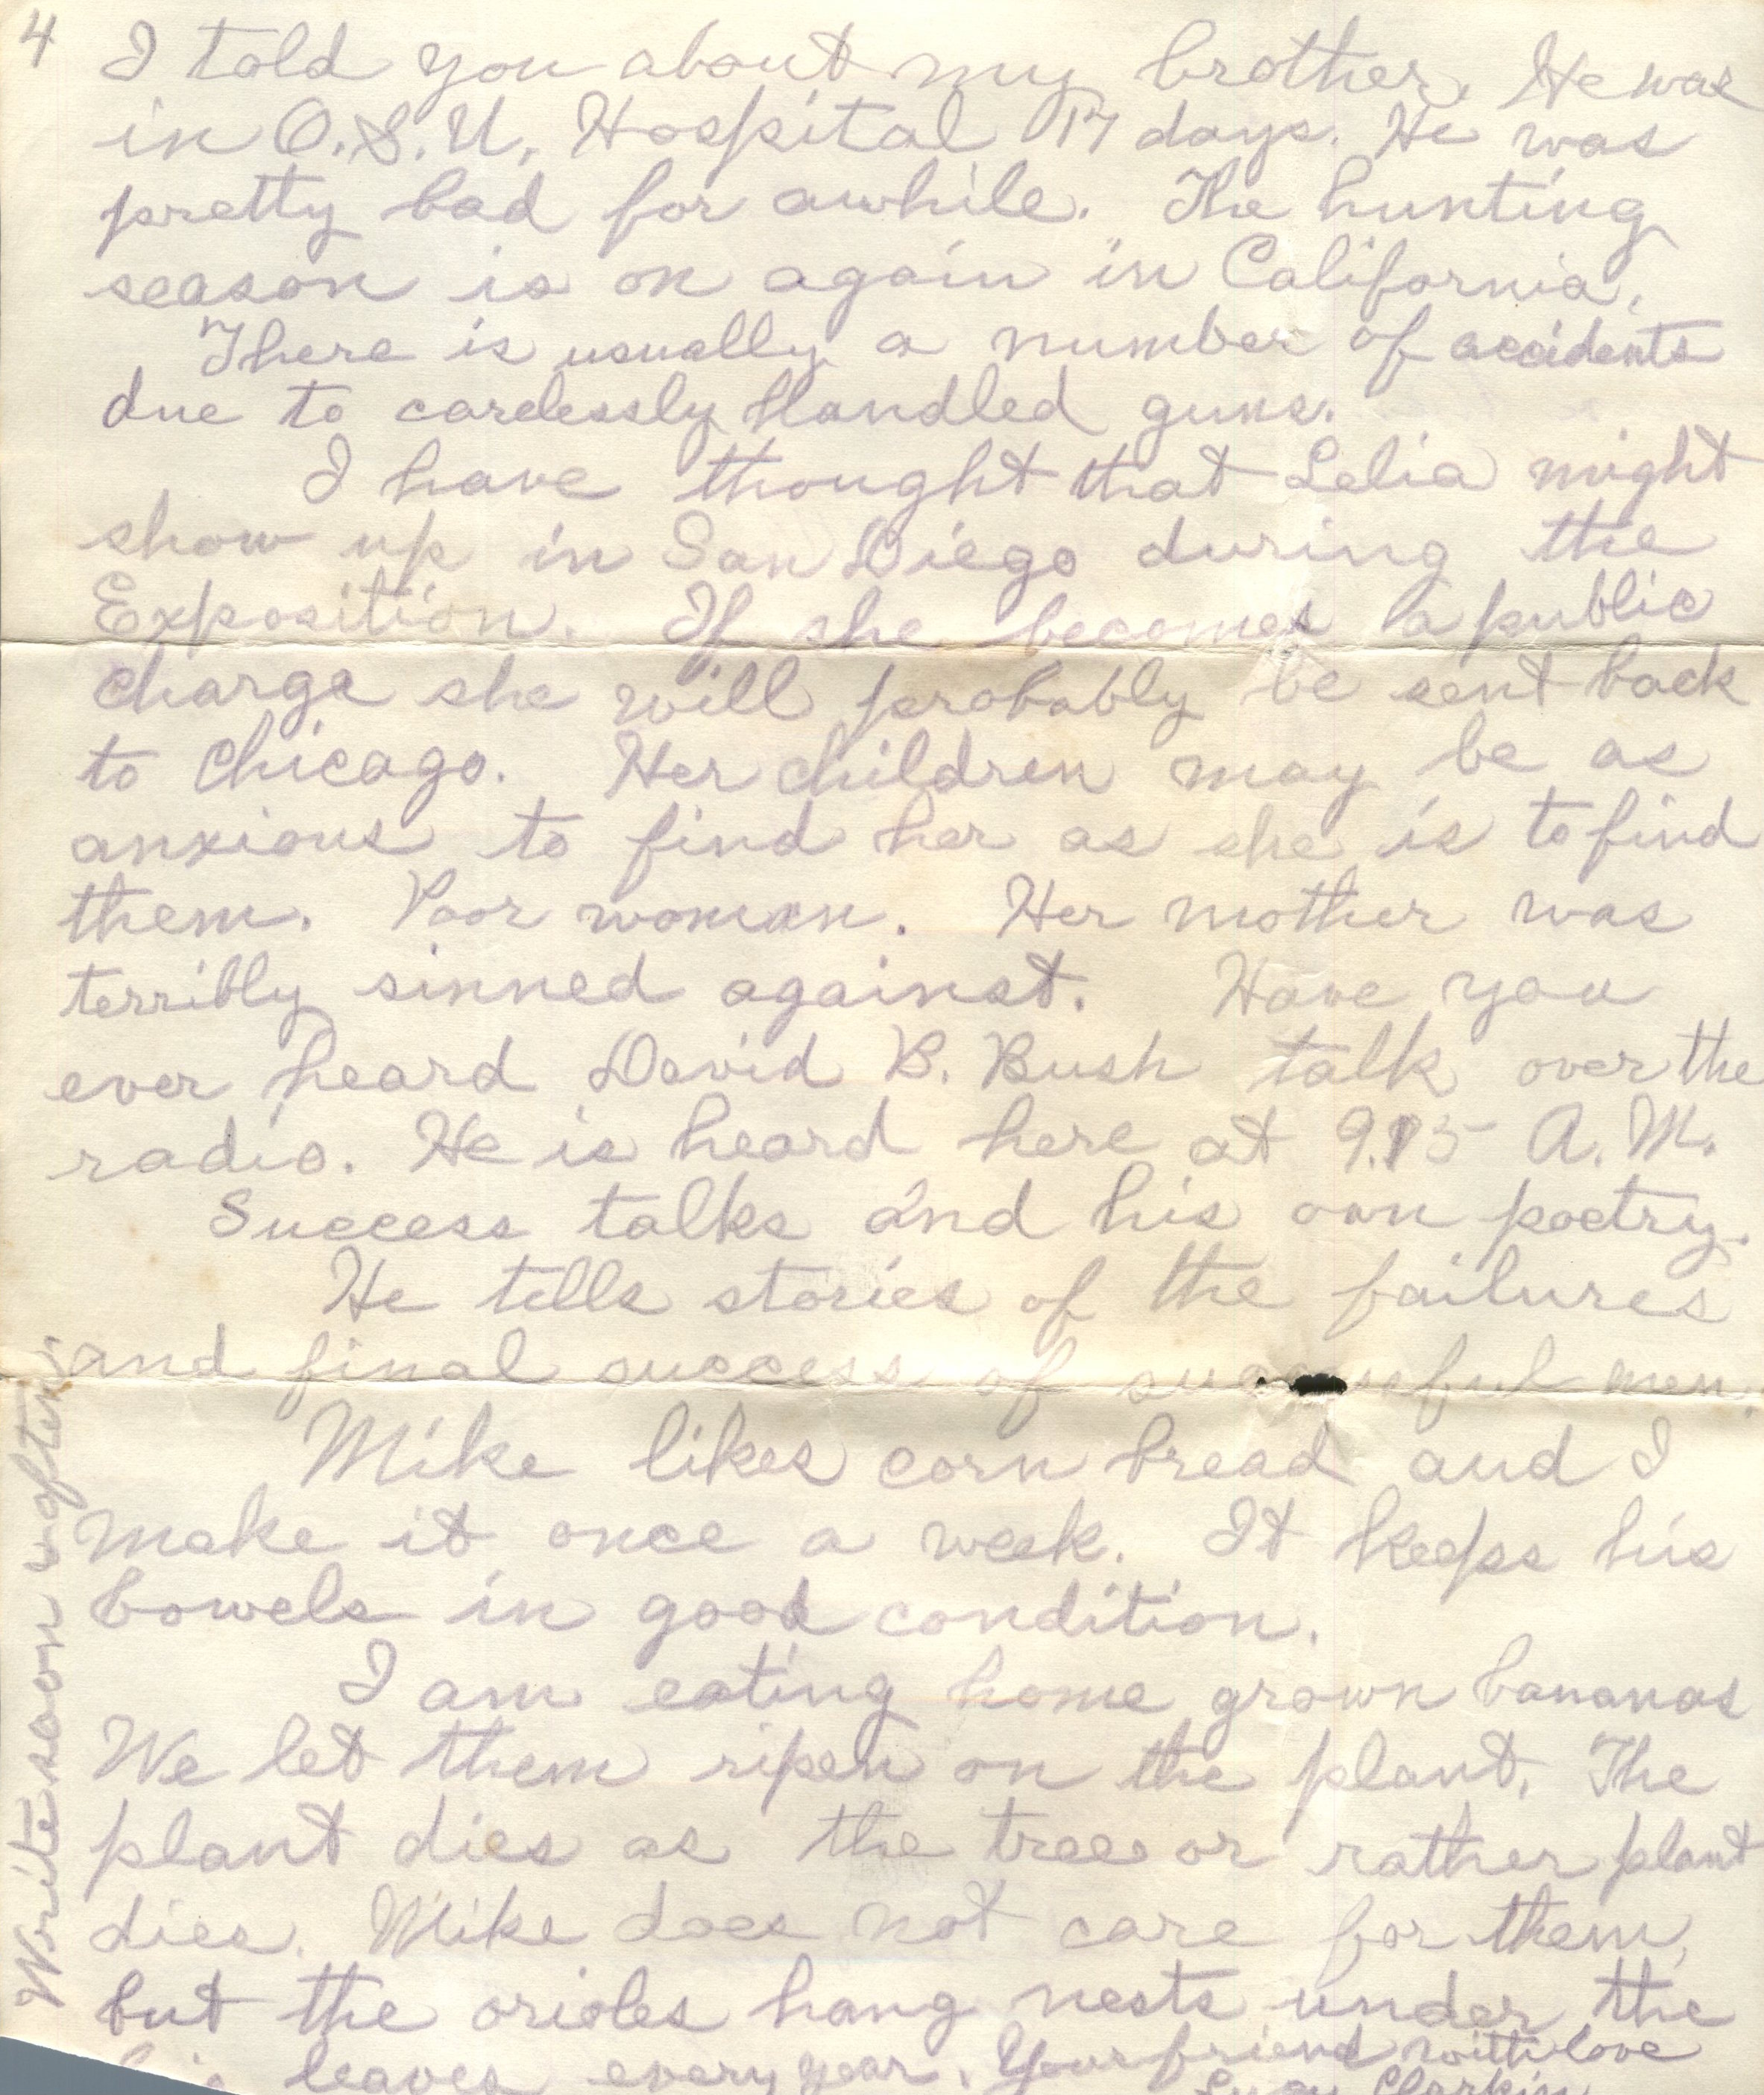 4
I told you about my brother. He was
in O.S.U. Hospital 17 days. He was
pretty bad for awhile. The hunting
season is on again in California.
There is usually a number of accidents
due to carelessly handled guns.
I have thought that Lelia might
show up in San Diego during the
Exposition. If she becomes a public
charge she will probably be sent back
to Chicago. Her children may be as
anxious to find her as she is to find
them. Poor woman. Her mother was
terribly sinned against. Have you
ever heard David B. Bush talk over the
radio. He is heard here at 9.15 A.M.
Success talks and his own poetry.
He tells stories of the failures
and final success of successful men.
Mike likes corn bread and I
make it once a week. It keeps his
bowels in good condition.
I am eating home grown bananas
We let them ripen on the plant. The
plant dies as the tree or rather plant
dies. Mike does not care for them,
but the orioles hang nests under the
big leaves every year. Your friend with love
Lucy
Write soon & often